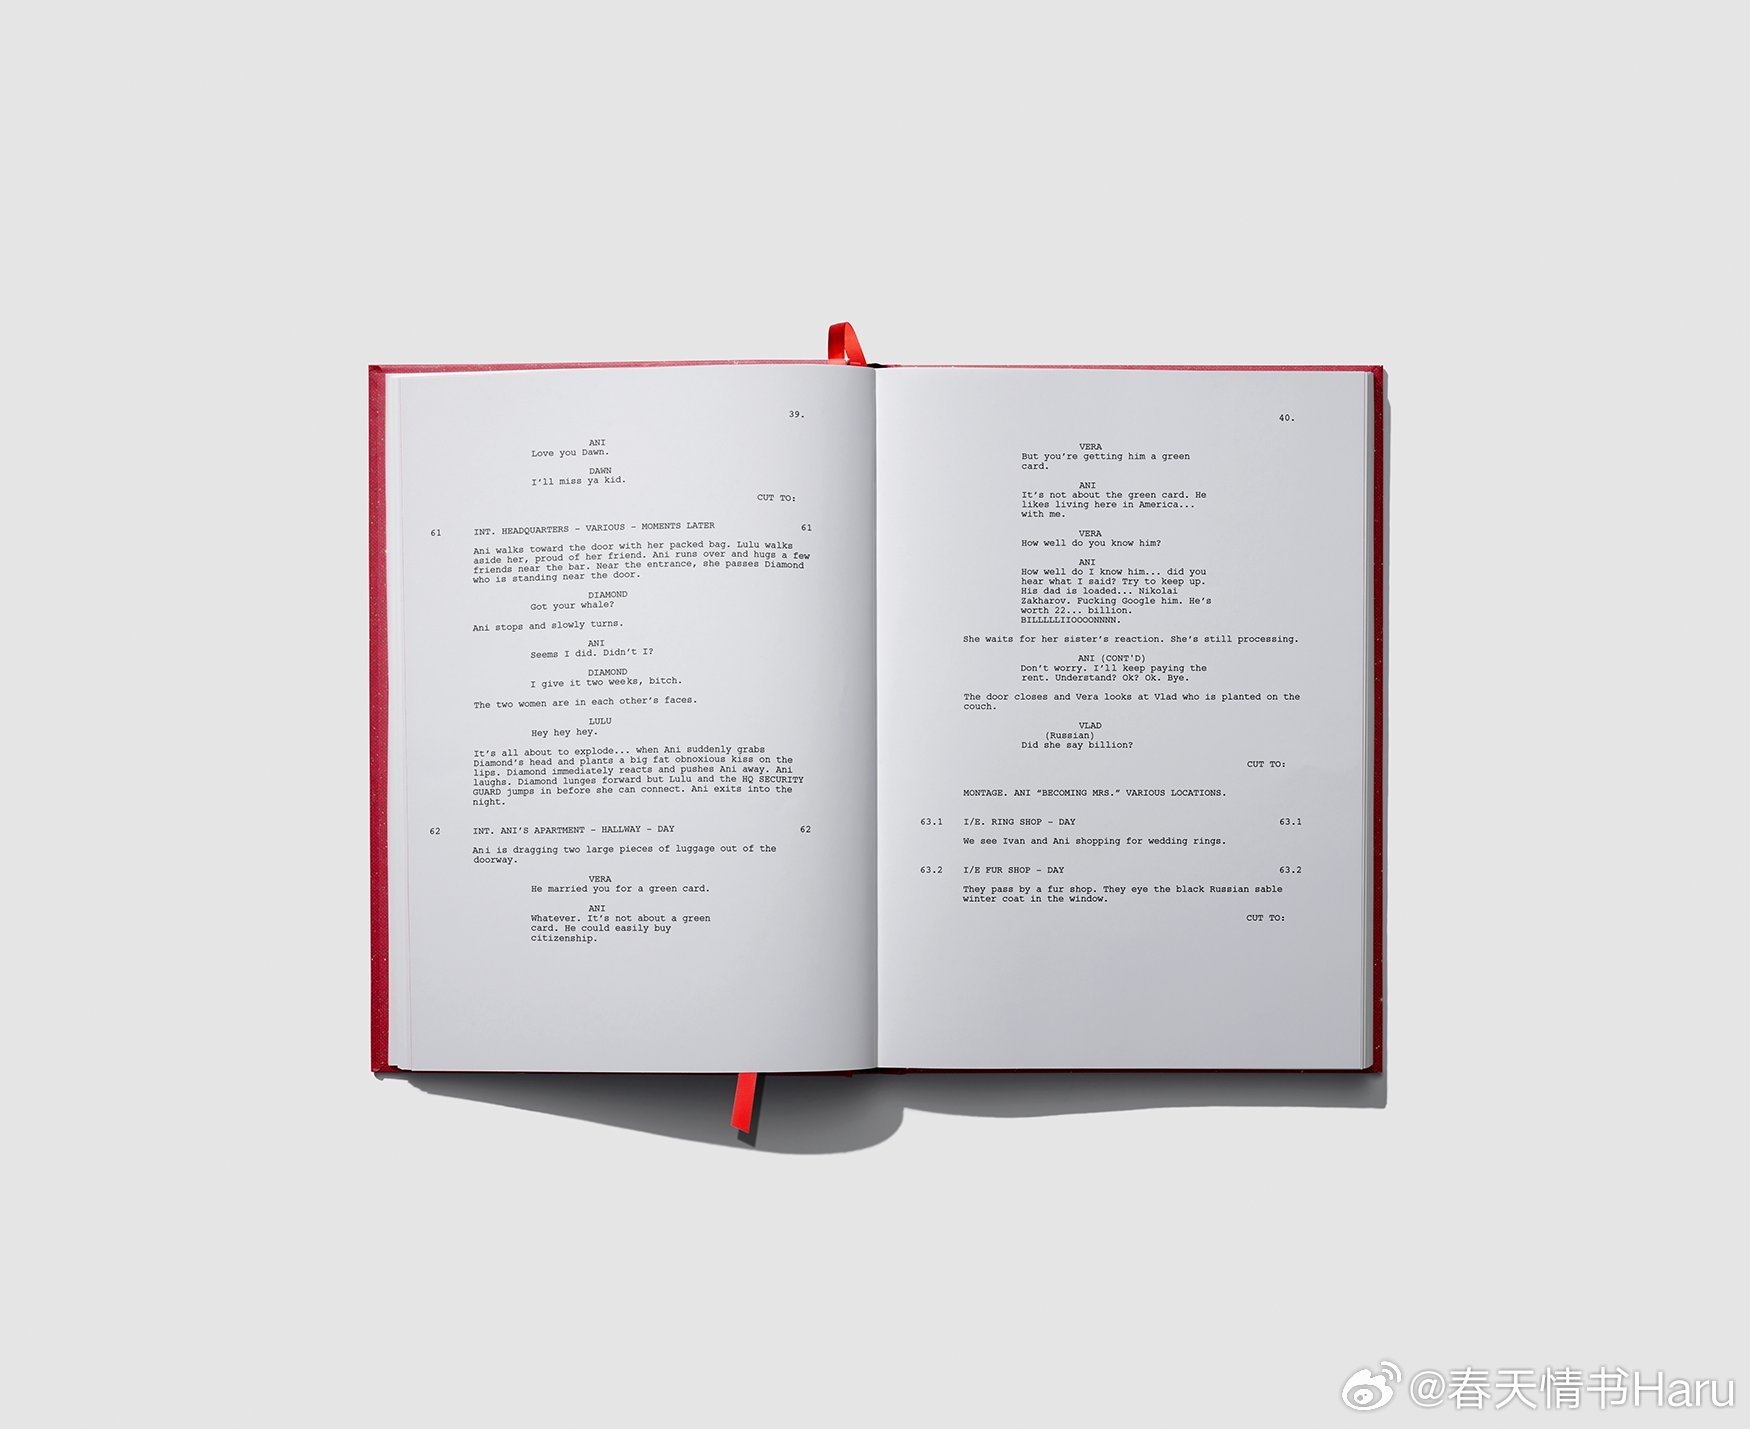 39.
ANI
Love you Dawn.
DAWN
I'll miss ya kid.
CUT TO:
61 INT. HEADQUARTERS - VARIOUS - MOMENTS LATER 61
Ani walks toward the door with her packed bag. Lulu walks
aside her, proud of her friend. Ani runs over and hugs a few
friends near the bar. Near the entrance, she passes Diamond
who is standing near the door.
DIAMOND
Got your whale?
Ani stops and slowly turns.
ANI
Seems I did. Didn't I?
DIAMOND
I give it two weeks, bitch.
The two women are in each other's faces.
LULU
Hey hey hey.
It's all about to explode... when Ani suddenly grabs
Diamond's head and plants a big fat obnoxious kiss on the
lips. Diamond immediately reacts and pushes Ani away. Ani
laughs. Diamond lunges forward but Lulu and the HQ SECURITY
GUARD jumps in before she can connect. Ani exits into the
night.
62 INT. ANI'S APARTMENT - HALLWAY - DAY 62
Ani is dragging two large pieces of luggage out of the
doorway.
VERA
He married you for a green card.
ANI
Whatever. It's not about a green
card. He could easily buy
citizenship.
40.
VERA
But you're getting him a green
card.
ANI
It's not about the green card. He
likes living here in America...
with me.
VERA
How well do you know him?
ANI
How well do I know him... did you
hear what I said? Try to keep up.
His dad is loaded... Nikolai
Zakharov. Fucking Google him. He's
worth 22... billion.
BILLLLLIIOOOONNNN.
She waits for her sister's reaction. She's still processing.
ANI (CONT'D)
Don't worry. I'll keep paying the
rent. Understand? Ok? Ok. Bye.
The door closes and Vera looks at Vlad who is planted on the
couch.
VLAD
(Russian)
Did she say billion?
CUT TO:
MONTAGE. ANI “BECOMING MRS.” VARIOUS LOCATIONS.
63.1 I/E. RING SHOP - DAY 63.1
We see Ivan and Ani shopping for wedding rings.
63.2 I/E FUR SHOP - DAY 63.2
They pass by a fur shop. They eye the black Russian sable
winter coat in the window.
CUT TO:
@春天情书Haru